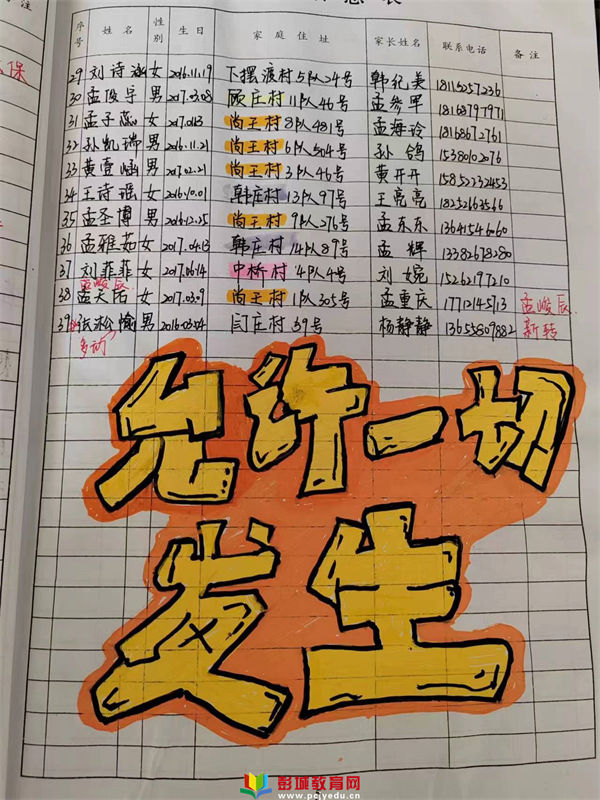 序号 姓名 性别 生日 家庭住址 家长姓名 联系电话 备注
29 刘诗 女 2016.11.19 下摆渡村5队24号 韩纪美 18115257236
30 孟俊宇 男 2017.03.08 顾庄村11队46号 孟参军 18168797971
31 孟子蕊 女 尚王村8队481号 孟海玲 18168672761
32 孙凯瑞 男 2016.11.21 尚王村6队504号 孙鸽 15380102076
33 黄壹涵 男 2017.02.21 尚王村3队46号 黄开开 15852232453
34 王诗瑶 女 2016.10.01 韩庄村13队97号 王亮亮 18252663566
35 孟圣博 男 2016.12.25 尚王村9队276号 孟东东 13641546060
36 孟雅茹 女 2017.04.13 韩庄村14队89号 孟辉 13382678280
37 刘菲菲 女 2017.06.14 中桥村4队4号 刘婉 15262197210
孟峻辰
38 孟天 女 2017.03.09 尚王村1队305号 孟重庆 17712145713 孟峻辰
39 张松愉 男 2016.03.04 闫庄村39号 杨静静 13655809882 新转
多动
允许一切
发生
彭城教育网
www.pcjyedu.cn